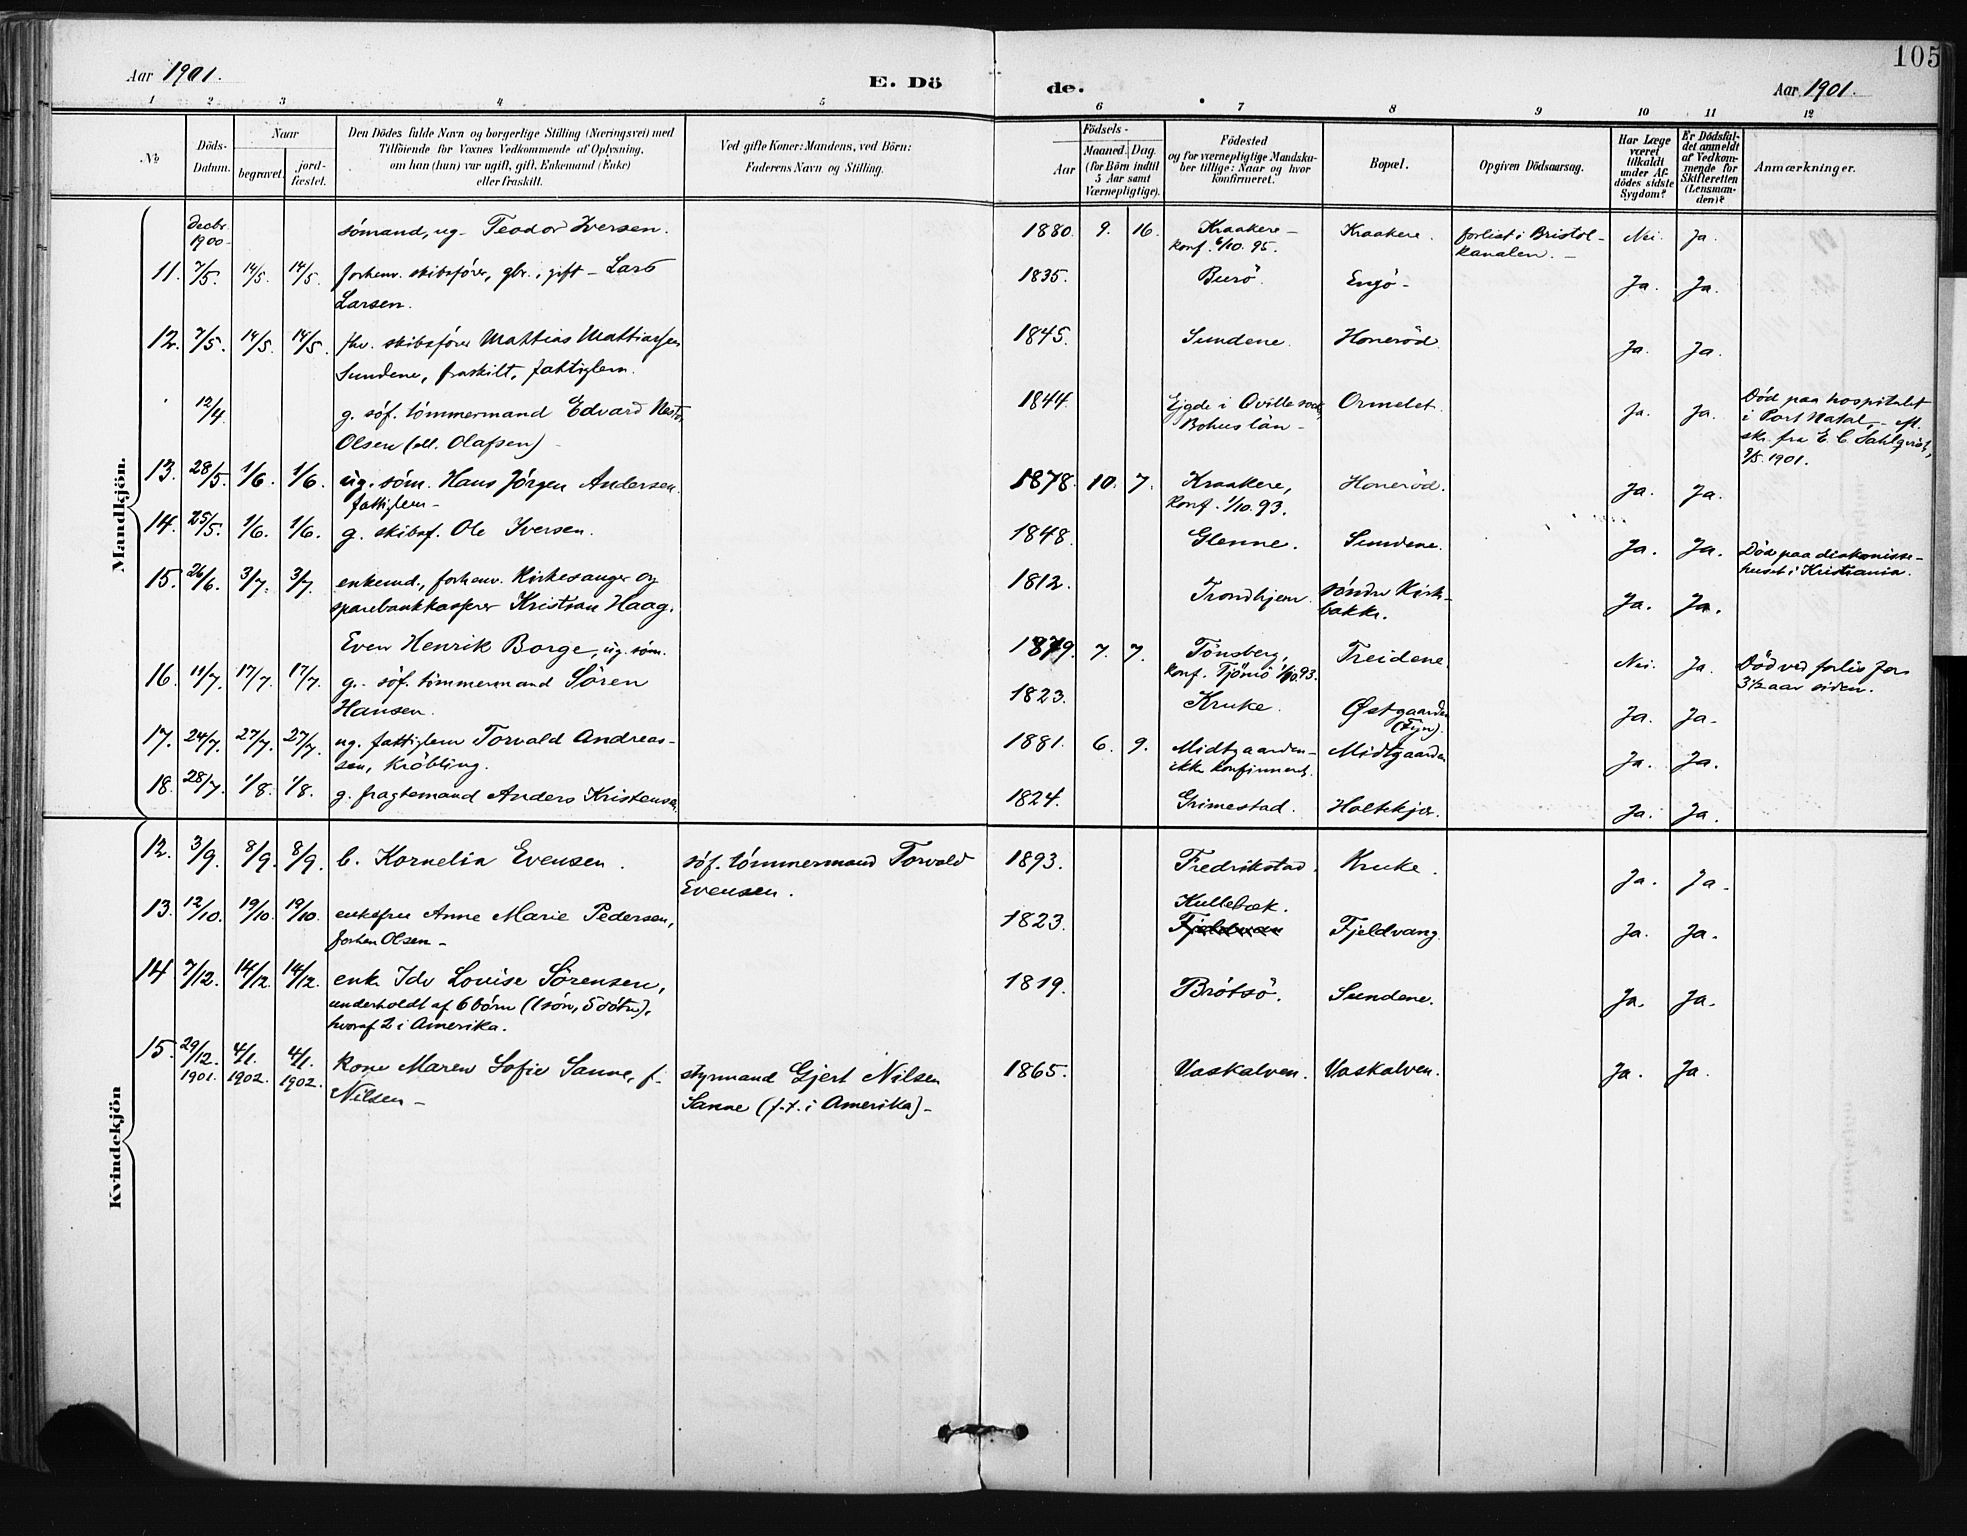 105
Aar 1901.
E. Dö
de.
Aar 1901.
1 2 3 4 5 6 7 8 9 10 11 12
No
Döds-
Datum.
Naar
begravet.
jord-
fæstet.
Den Dödes fulde Navn og borgerlige Stilling (Næringsvei) med
Tilföiende for Voxnes Vedkommende af Oplysning,
om han (hun) var ugift, gift, Enkemand (Enke)
eller fraskilt.
Ved gifte Koner: Mandens, ved Börn:
Faderens Navn og Stilling.
Födsels-
Aar
Maaned.
Dag.
(for Börn indtil
5 Aar samt
Værnepligtige).
Födested
og for værnepligtige Mandska-
ber tillige: Naar og hvor
konfirmeret.
Bopæl.
Opgiven Dödsaarsag.
Har Læge
været
tilkaldt
under Af-
dödes sidste
Sygdom?
Er Dödsfal-
det anmeldt
af Vedkom-
mende for
Skifteretten
(Lensman-
den)?
Anmærkninger.
Mandkjön.
Decbr.
1900-
sömand, ug. Teodor Iversen.
1880. 9. 16.
Kraakere -
konf. 6/10. 95.
Kraakere.
forlist i Bristol-
kanalen. -
Nei. Ja.
11. 7/5. 14/5. 14/5.
forhenv. skibsförer, gbr., gift - Lars
Larsen.
1835. Burö. Engö- Ja. Ja.
12. 7/5. 14/5. 14/5.
fhv. skibsförer Mattias Mattiassen
Sundene, fraskilt, fattiglem.
1845. Sundene. Honeröd. Ja. Ja.
12/4.
g. söf. tömmermand Edvard
Olsen (ell. Olafsen) -
1844. Ejgde i Qville sock,
Bohuslän -
Ormelet. Ja. Ja.
Död paa hospitalet
i Port Natal, - efl.
skr. fra E C Sahlqvist,
9/5. 1901.
13. 28/5. 1/6. 1/6.
ug. söm. Hans Jörgen Andersen.
fattiglem -
1878. 10. 7.
Kraakere,
konf. 1/10. 93.
Honeröd. Ja. Ja.
14. 25/5. 1/6. 1/6.
g. skibsf. Ole Iversen.
1848. Glenne. Sundene. Ja. Ja.
Död paa diakonisse-
huset i Kristiania.
15. 26/6. 3/7. 3/7.
enkemd., forhenv. kirkesanger og
sparebankkasserer Kristian Haag.
1812. Trondhjem. söndre Kirk-
bakke.
Ja. Ja.
Even Henrik Borge, ug. söm.
1879. 7. 7.
Tönsberg,
konf. Tjömö 1/10. 93.
Treidene. Nei. Ja.
Död ved forlis for
3 1/2 aar siden.
16. 11/7. 17/7. 17/7.
g. söf. tömmermand Sören
Hansen.
1823. Kruke. Østgaarden
(Fyn).
Ja. Ja.
17. 24/7. 27/7. 27/7.
ug. fattiglem Torvald Andreas-
sen, kröbling.
1881. 6. 9.
Midtgaarden-
ikke konfirmeret.
Midtgaarden Ja. Ja.
18. 28/7. 1/8. 1/8.
g. fragtemand Anders Kristensen.
1824. Grimestad. Holtekjær. Ja. Ja.
Kvindekjön
12. 3/9. 8/9. 8/9.
b. Kornelia Evensen.
söf. tömmermand Torvald
Evensen.
1893. Fredrikstad. Kruke. Ja. Ja.
13. 12/10. 19/10. 19/10.
enkefru Anne Marie Pedersen,
forhen Olsen -
1823. Kullebæk.
Fjeldvang. Ja. Ja.
14 7/12. 14/12. 14/12.
enk. Ida Lovise Sörensen,
underholdt af 6 börn (1 sön, 5 dötre),
hvoraf 2 i Amerika.
1819. Brötsö. Sundene. Ja. Ja.
15. 29/12. 1901. 4/1. 1902. 4/1. 1902.
kone Maren Sofie Sanne, f.
Nilsen -
styrmand Gjert Nilsen
Sanne (f.t. i Amerika) -
1865. Vaskalven. Vaskalven. Ja. Ja.